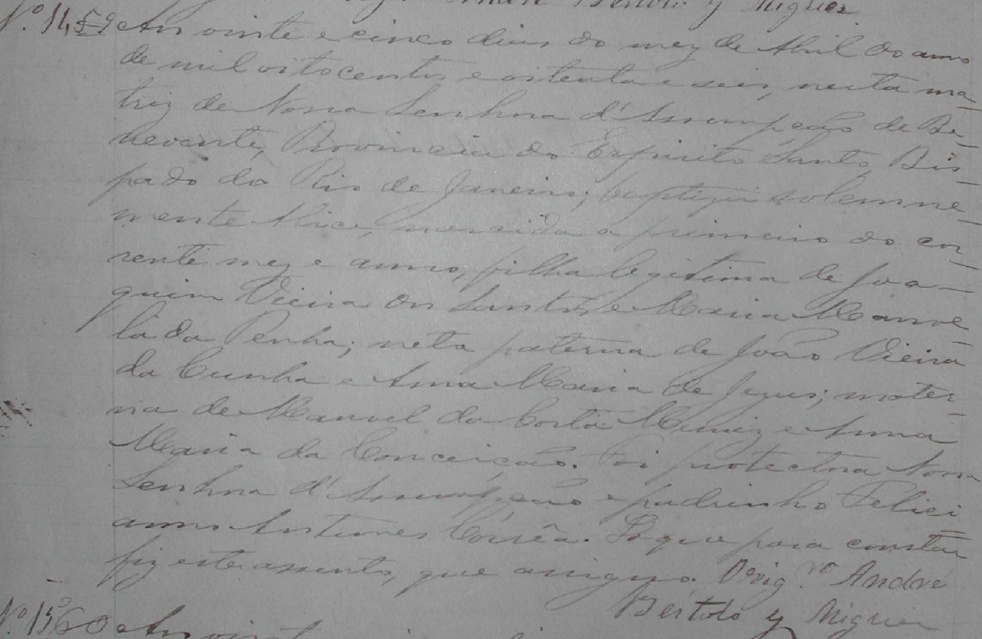 Bertolo y Niguer
Nº 1459 Aos vinte e cinco dias do mez de Abril do anno
de mil oitocentos e oitenta e seis, nesta ma-
triz de Nossa Senhora d'Assumpção de Be-
nevente, Provincia do Espirito Santo, Bis-
pado do Rio de Janeiro; baptizei solemne-
mente Alice, nascida a primeiro do cor-
rente mez e anno, filha legitima de Joa-
quim Vieira dos Santos, e Maria Manoe-
la da Penha; neta paterna de João Vieira
da Cunha e Anna Maria de Jezus; mater-
na de Manoel da Costa Muniz e Anna
Maria da Conceição. Foi protectora Nossa
Senhora d'Assumpção e padrinho Felici
anno Antunes Corrêa. Do que para constar
fiz este assento, que assigno. O vigrº André
Bertolo y Niguer
Nº 1560 Aos vinte